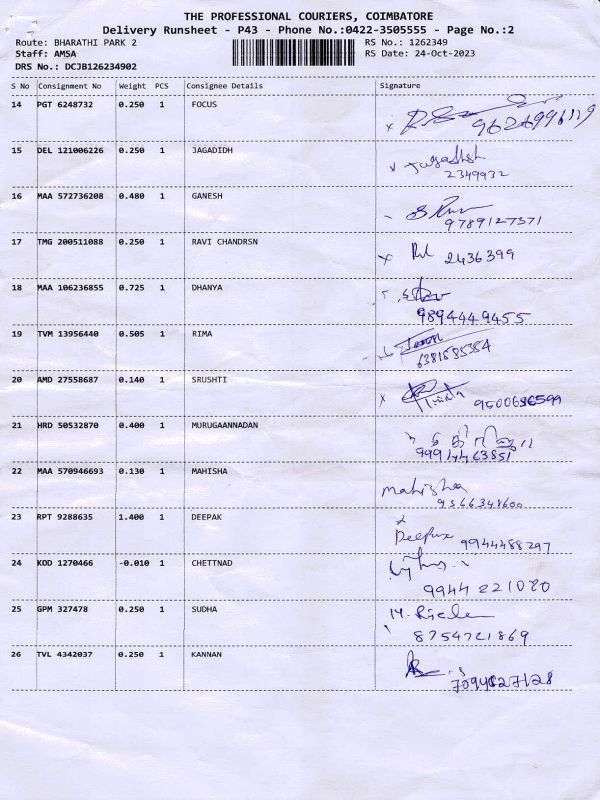 THE PROFESSIONAL COURIERS, COIMBATORE
Delivery Runsheet - P43 - Phone No.:0422-3505555 - Page No.:2
Route: BHARATHI PARK 2 RS No.: 1262349
Staff: AMSA RS Date: 24-Oct-2023
DRS No.: DCJB126234902
S No Consignment No Weight PCS Consignee Details Signature
14 PGT 6248732 0.250 1 FOCUS
15 DEL 121006226 0.250 1 JAGADIDH Jagadish
2349932
16 MAA 572736208 0.480 1 GANESH
9789127371
17 TMG 200511088 0.250 1 RAVI CHANDRSN 2436399
18 MAA 106236855 0.725 1 DHANYA
9894449455
19 TVM 13956440 0.505 1 RIMA
6381685354
20 AMD 27558687 0.140 1 SRUSHTI
21 HRD 50532870 0.400 1 MURUGAANNADAN
9991463851
22 MAA 570946693 0.130 1 MAHISHA mahisha
9566348600
23 RPT 9288635 1.400 1 DEEPAK 9944488297
24 KOD 1270466 -0.010 1 CHETTNAD
9944 221020
25 GPM 327478 0.250 1 SUDHA
8754721869
26 TVL 4342037 0.250 1 KANNAN